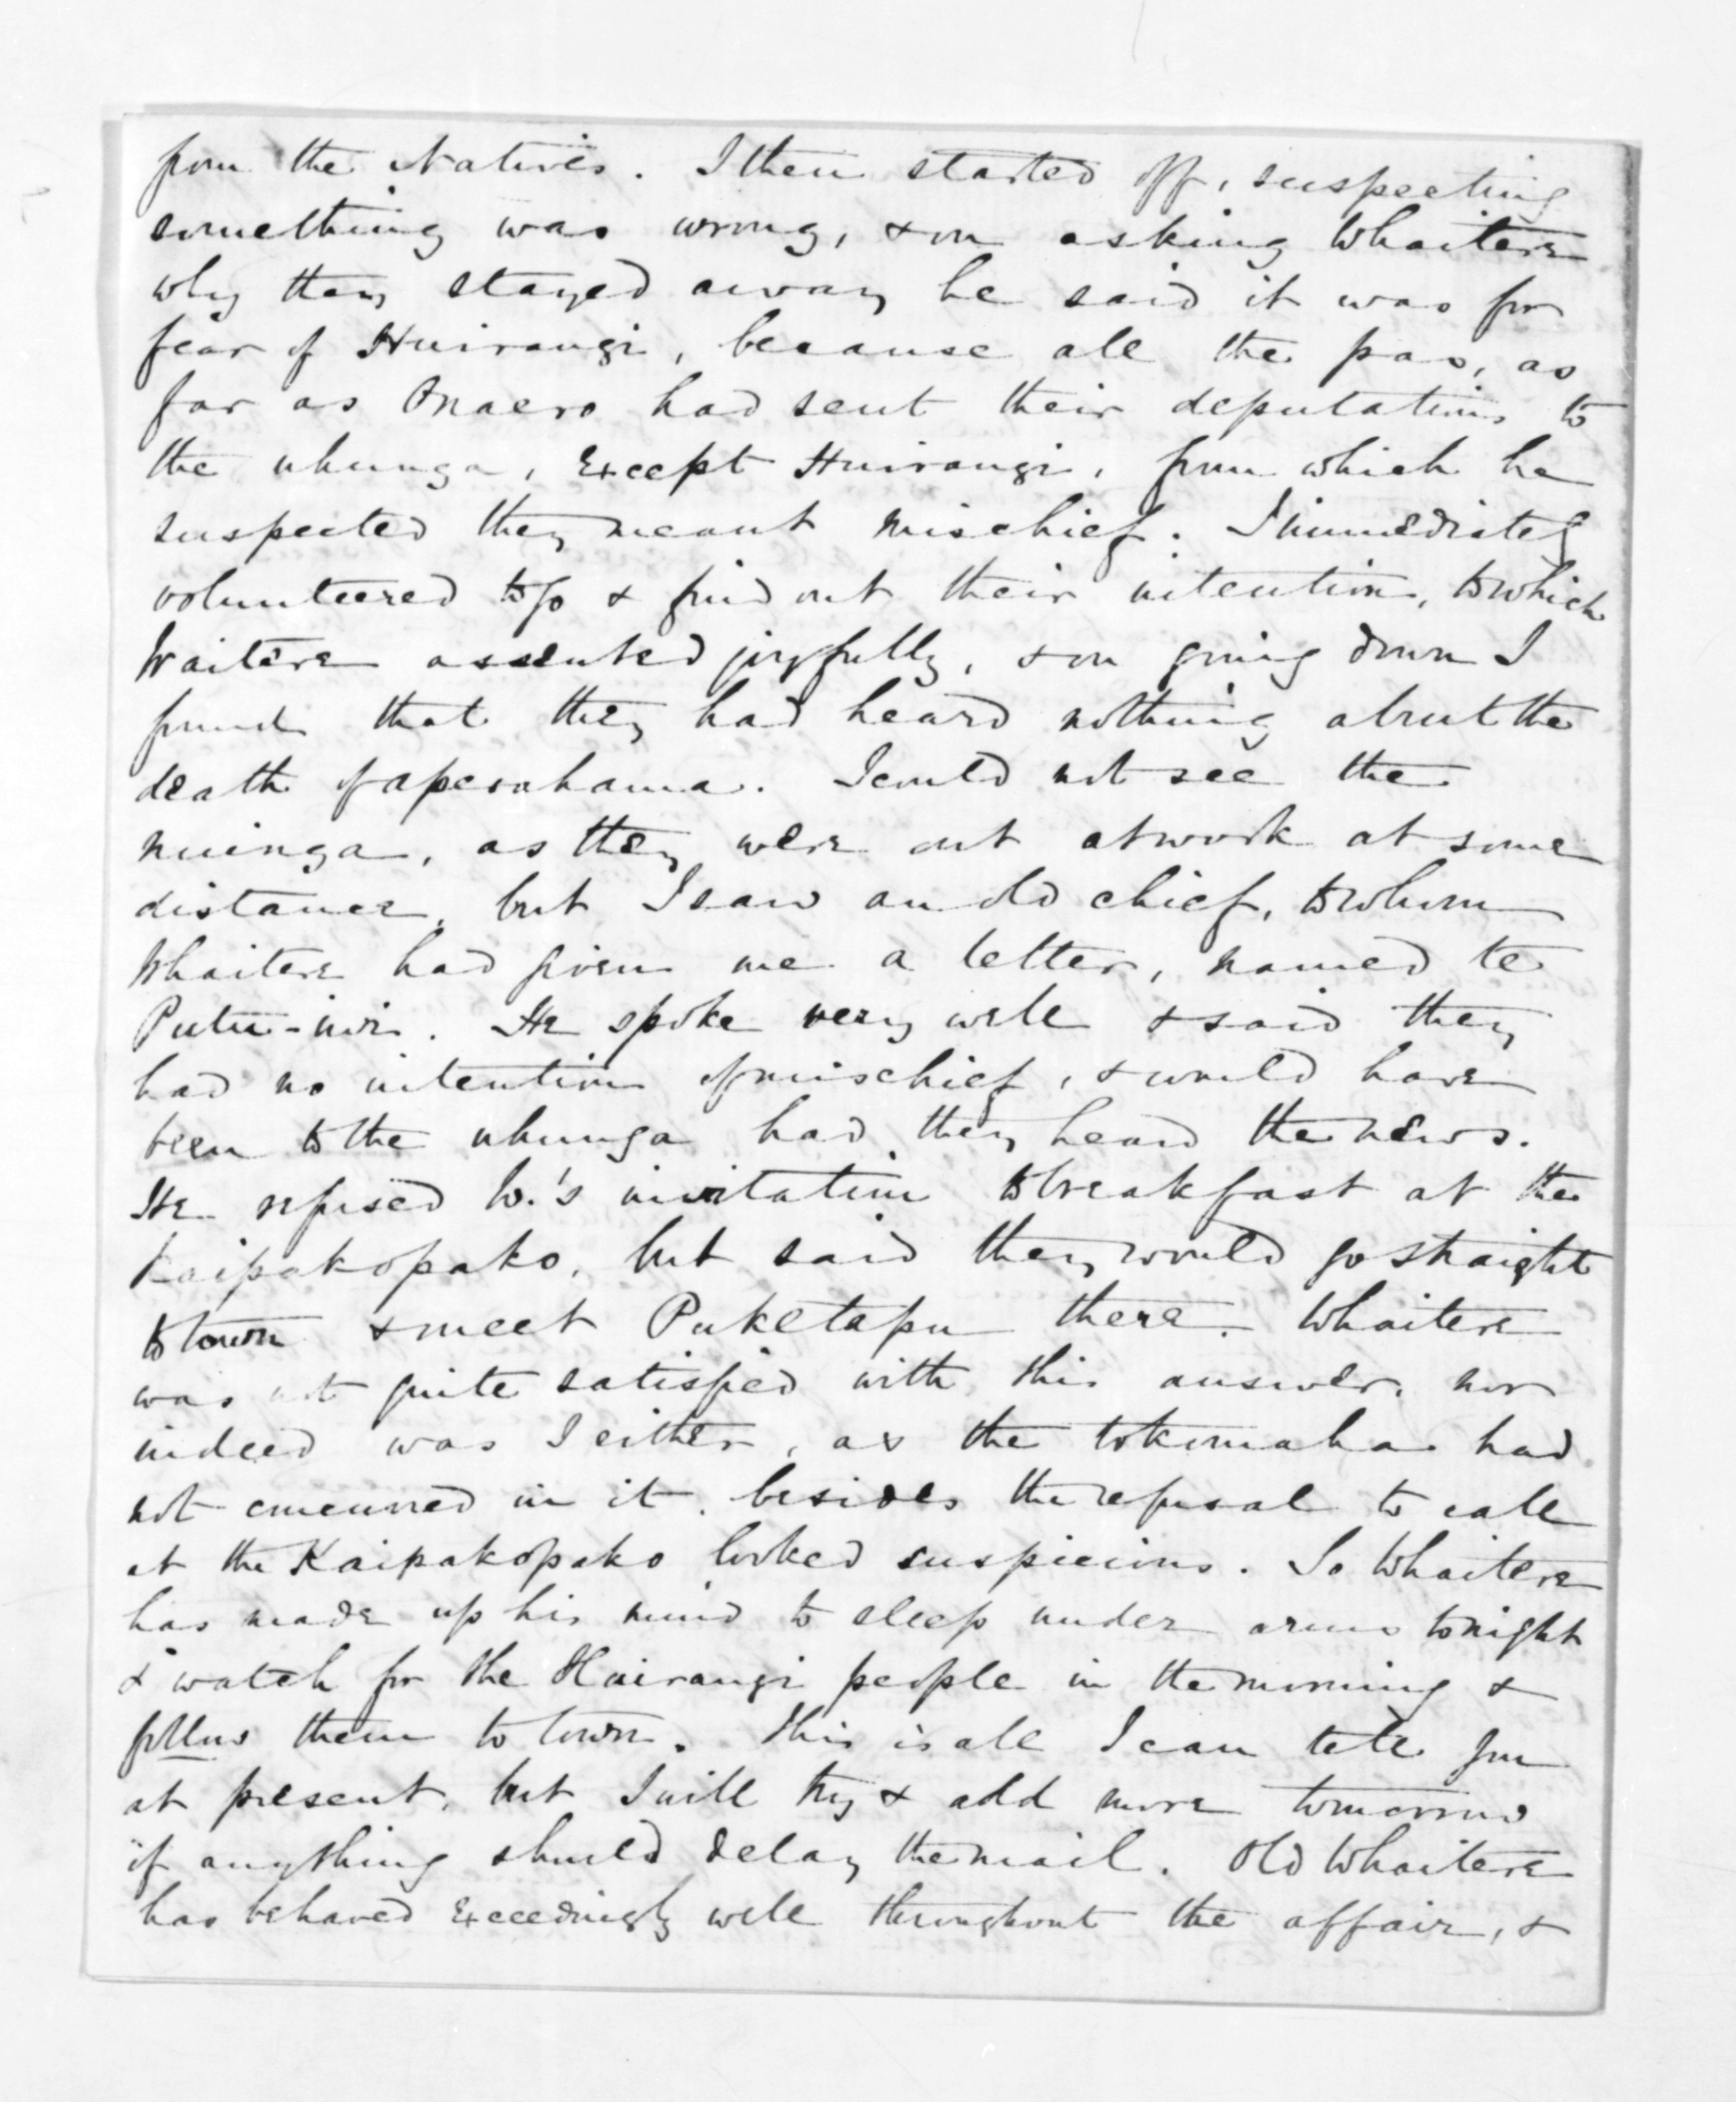 from the Natives. I then started off, suspecting
something was wrong, & on asking Whaitere
why they stayed away he said it was for
fear of Huirangi, because all the pas, as
far as Onaero had sent their deputations to
the uhunga, except Huirangi, from which he
suspected they meant mischief. I immediately
volunteered to go & find out their intention, to which
Waitere assented joyfully, & on going down I
found that they had heard nothing about the
death of aperahama. I could not see the
nuinga, as they were out at work at some
distance, but I saw an old chief, to whom
Whaitere had given me a letter, named te
He spoke very well & said they
had no intention of mischief, & would have
been to the uhunga had they heard the news.
He refused W.'s invitation to breakfast at the
Kaipakopako, but said they would go straight
to town & meet Puketapu there. Whaitere
was not quite satisfied with this answer, nor
indeed was I either, as the tokomaha had
not concurred in it, besides the refusal to call
at the Kaipakopako looked suspicious. So Whaitere
has made up his mind to sleep under arms tonight
& watch for the Huirangi people in the morning &
follow them to town. This is all I can tell you
at present, but I will try & add more tomorrow
if anything should delay the mail. Old Whaitere
has behaved exceedingly well throughout the affair, &